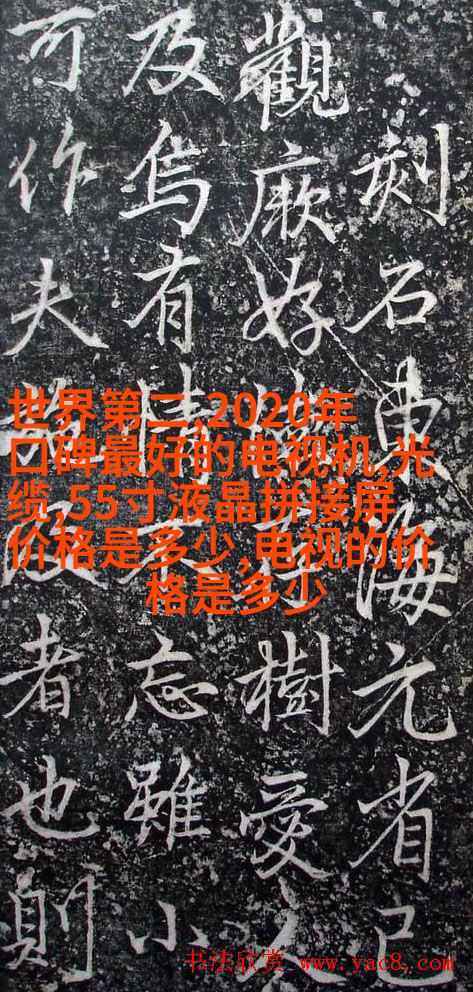 刻石東海元省己
觀厥好樹愛
及烏有情不忘雖小
可作夫者也則
世界第二,2020年
口碑最好的电视机,光
缆,55寸液晶拼接屏
价格是多少,电视的价
格是多少
书法欣赏 www.yac8.com